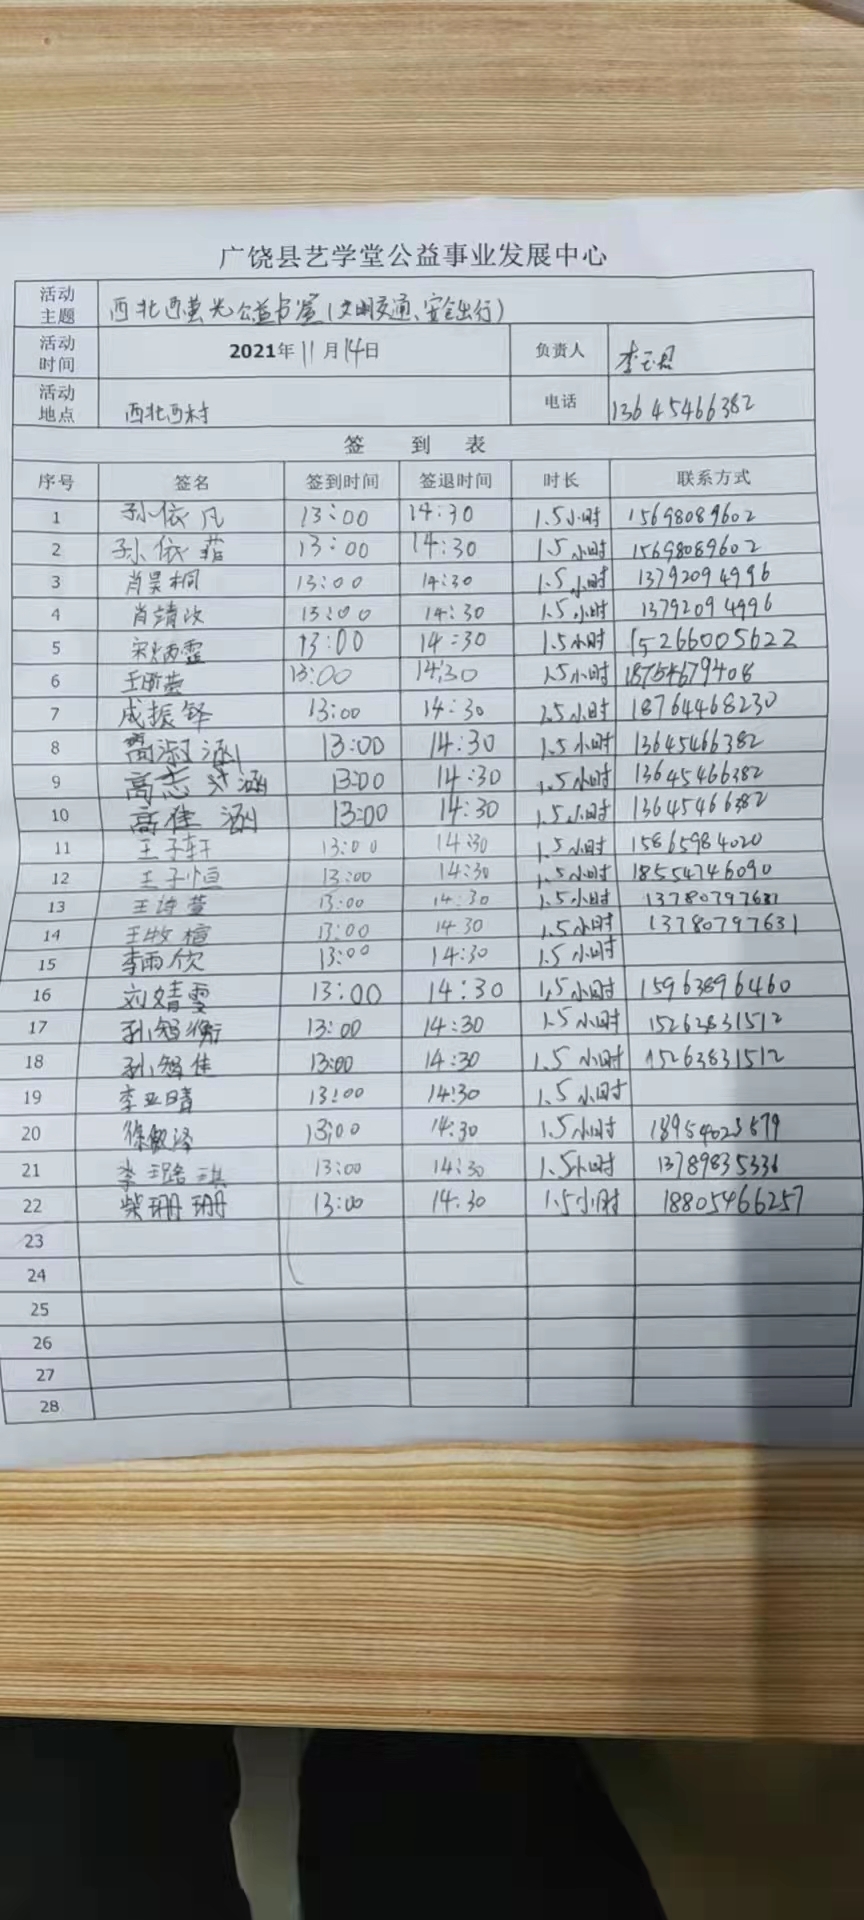 广饶县艺学堂公益事业发展中心
活动主题 西北西萤光公益书屋(文明交通、安全出行)
活动时间 2021年11月14日 负责人 李玉
活动地点 西北西村 电话 13645466382
签到表
序号 签名 签到时间 签退时间 时长 联系方式
1 孙依凡 13:00 14:30 1.5小时 15698089602
2 孙依菲 13:00 14:30 1.5小时 15698089602
3 肖昊桐 13:00 14:30 1.5小时 13792094996
4 肖靖 13:00 14:30 1.5小时 13792094996
5 宋炳霏 13:00 14:30 1.5小时 15266005622
6 王 13:00 14:30 1.5小时 18754679408
7 成振铎 13:00 14:30 1.5小时 18764468230
8 高淑涵 13:00 14:30 1.5小时 13645466382
9 高志涵 13:00 14:30 1.5小时 13645466382
10 高佳涵 13:00 14:30 1.5小时 13645466382
11 王子轩 13:00 14:30 1.5小时 15865984020
12 王子恒 13:00 14:30 1.5小时 18554746090
13 王诗萱 13:00 14:30 1.5小时 13780797631
14 王牧楦 13:00 14:30 1.5小时 13780797631
15 李雨欣 13:00 14:30 1.5小时
16 刘婧雯 13:00 14:30 1.5小时 15963896460
17 孙智衡 13:00 14:30 1.5小时 15262831512
18 孙智佳 13:00 14:30 1.5小时 15263831512
19 李亚晴 13:00 14:30 1.5小时
20 徐敏泽 13:00 14:30 1.5小时
21 李璐琪 13:00 14:30 1.5小时 13789835336
22 柴珊珊 13:00 14:30 1.5小时 18805466257
23
24
25
26
27
28